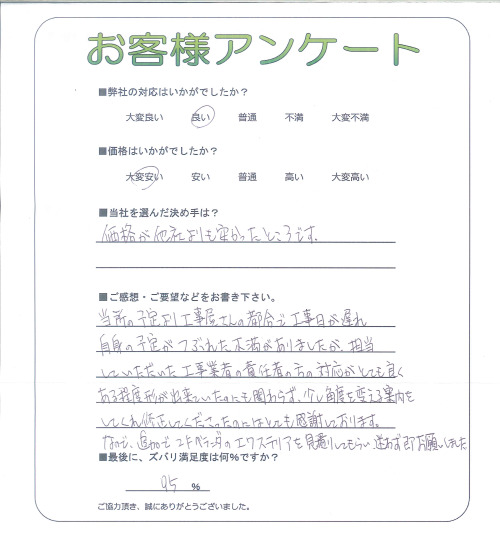 お客様アンケート
■弊社の対応はいかがでしたか？
大変良い 良い 普通 不満 大変不満
■価格はいかがでしたか？
大変安い 安い 普通 高い 大変高い
■当社を選んだ決め手は？
価格が他社よりも安かったところです。
■ご感想・ご要望などをお書き下さい。
当所の予定より工事屋さんの都合で工事日が遅れ
自身の予定がつぶれた不満がありましたが、担当
していただいた工事業者の責任者の方の対応がとても良く
ある程度形が出来ていたのにも関わらず、少し角度を変える案内を
してくれ修正してくださったのにはとても感謝しております。
なので、追加で エクステリアを見積りしてもらい、迷わず即お願いしました
■最後に、ズバリ満足度は何％ですか？
95 ％
ご協力頂き、誠にありがとうございました。